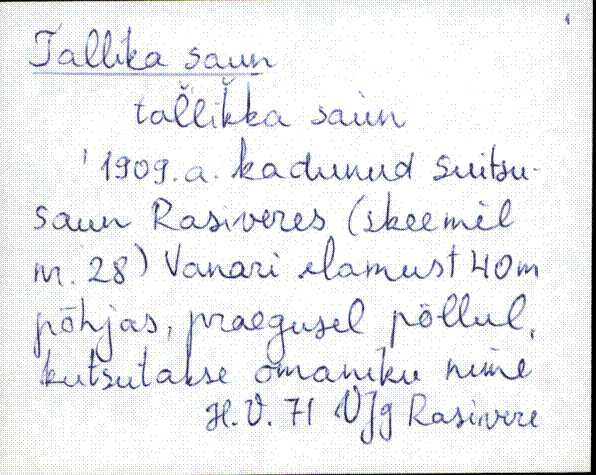 Tallika saun
tal̆lik̆ka saùn
1909.a. kadunud suitsu-
saun Rasiveres (skeemil
nr. 28) Vanari elamust 40m
põhjas, praegusel põllul,
kutsutakse omaniku nime
H.V. 71 VJg Rasivere